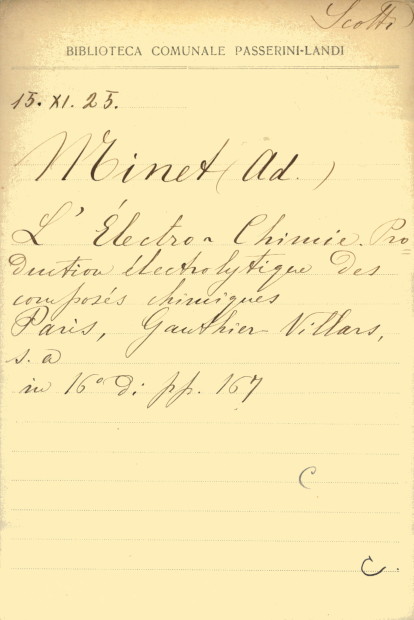 Scotti
BIBLIOTECA COMUNALE PASSERINI-LANDI
15. XI. 25.
Minet (Ad.)
L'Électro-Chimie. Pro=
duction électrolytique des
composés chimiques
Paris, Gauthier-Villars,
s. a
in 16° di pp. 167
C
C.